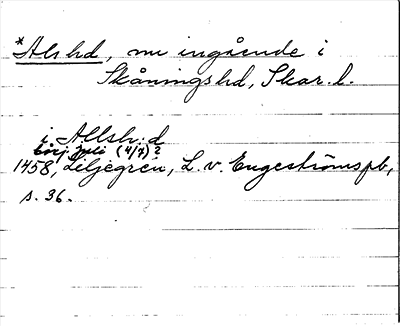 *Als hd, nu ingående i
Skåningshd, Skar. l.
i Allsh:d
börj. juli (4/7)?
1458, Liljegren, L. v. Engeströms pb,
s. 36.